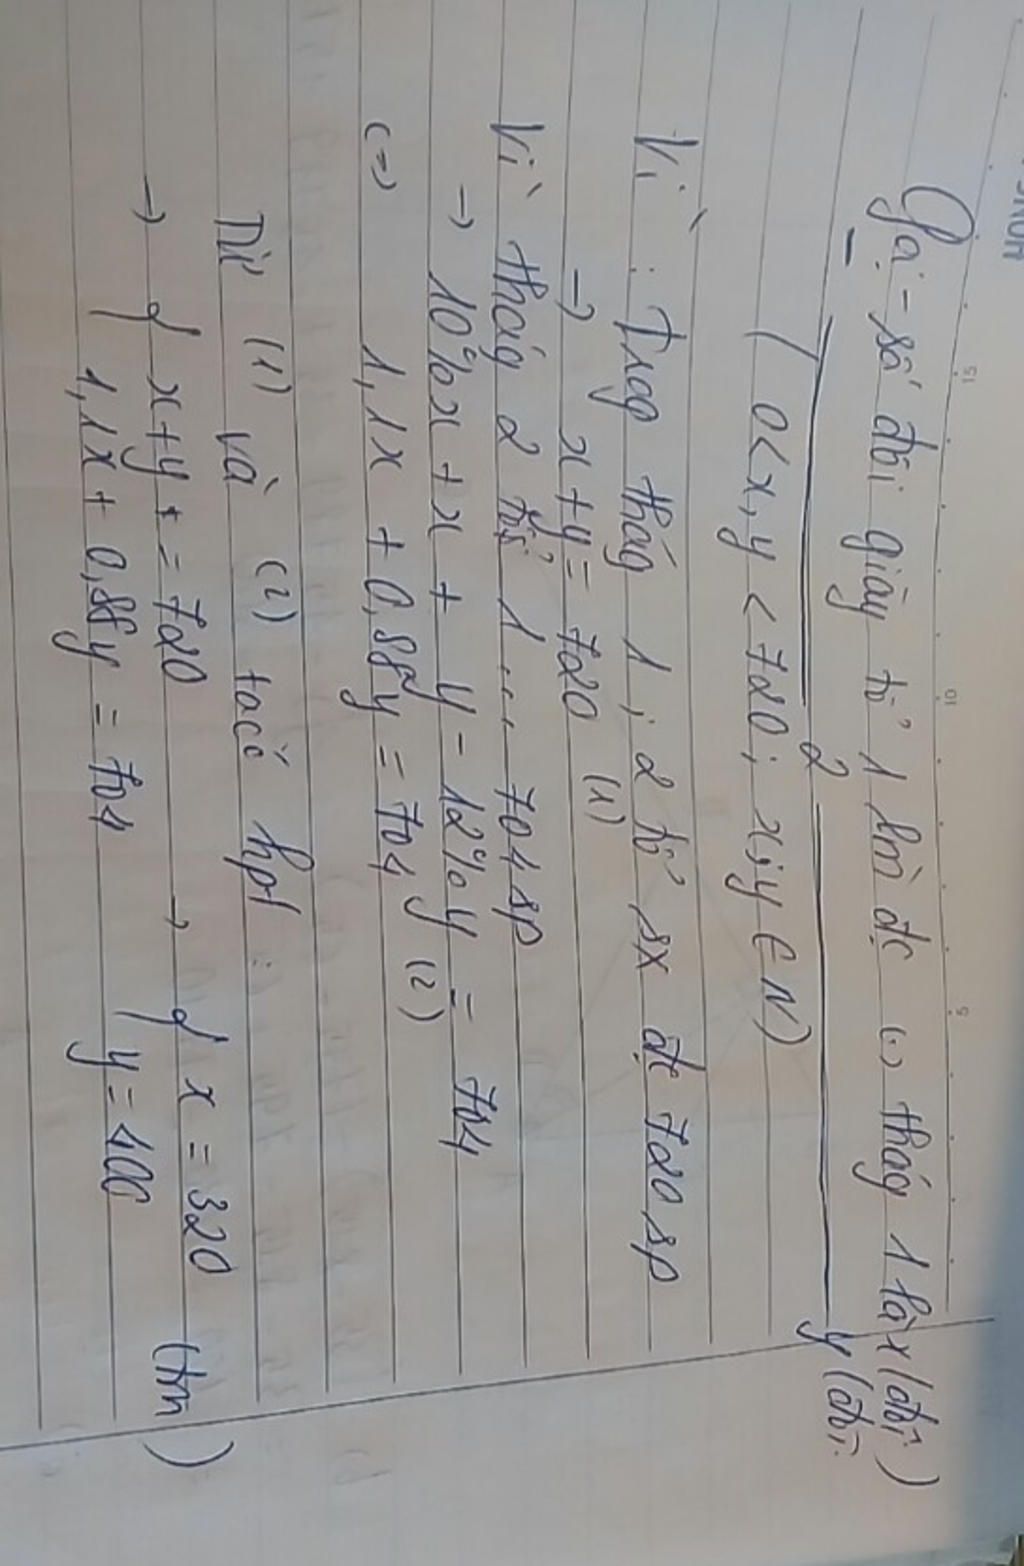 Gọi - số đôi giày tổ 1 làm đc trog thág 1 là x (đôi)
2 y (đôi
(0<x, y < 720; x; y ∈ N)
Vì : Trog thág 1, 2 tổ sx đc 720 sp
→ x + y = 720 (1)
Vì thág 2 tổ 1 ... 704 sp
→ 10% x + x + y - 12% y = 704
<=> 1,1x + 0,88y = 704 (2)
Từ (1) và (2) ta có hpt :
→ { x + y = 720 → { x = 320 (tm)
1,1x + 0,88y = 704 y = 400